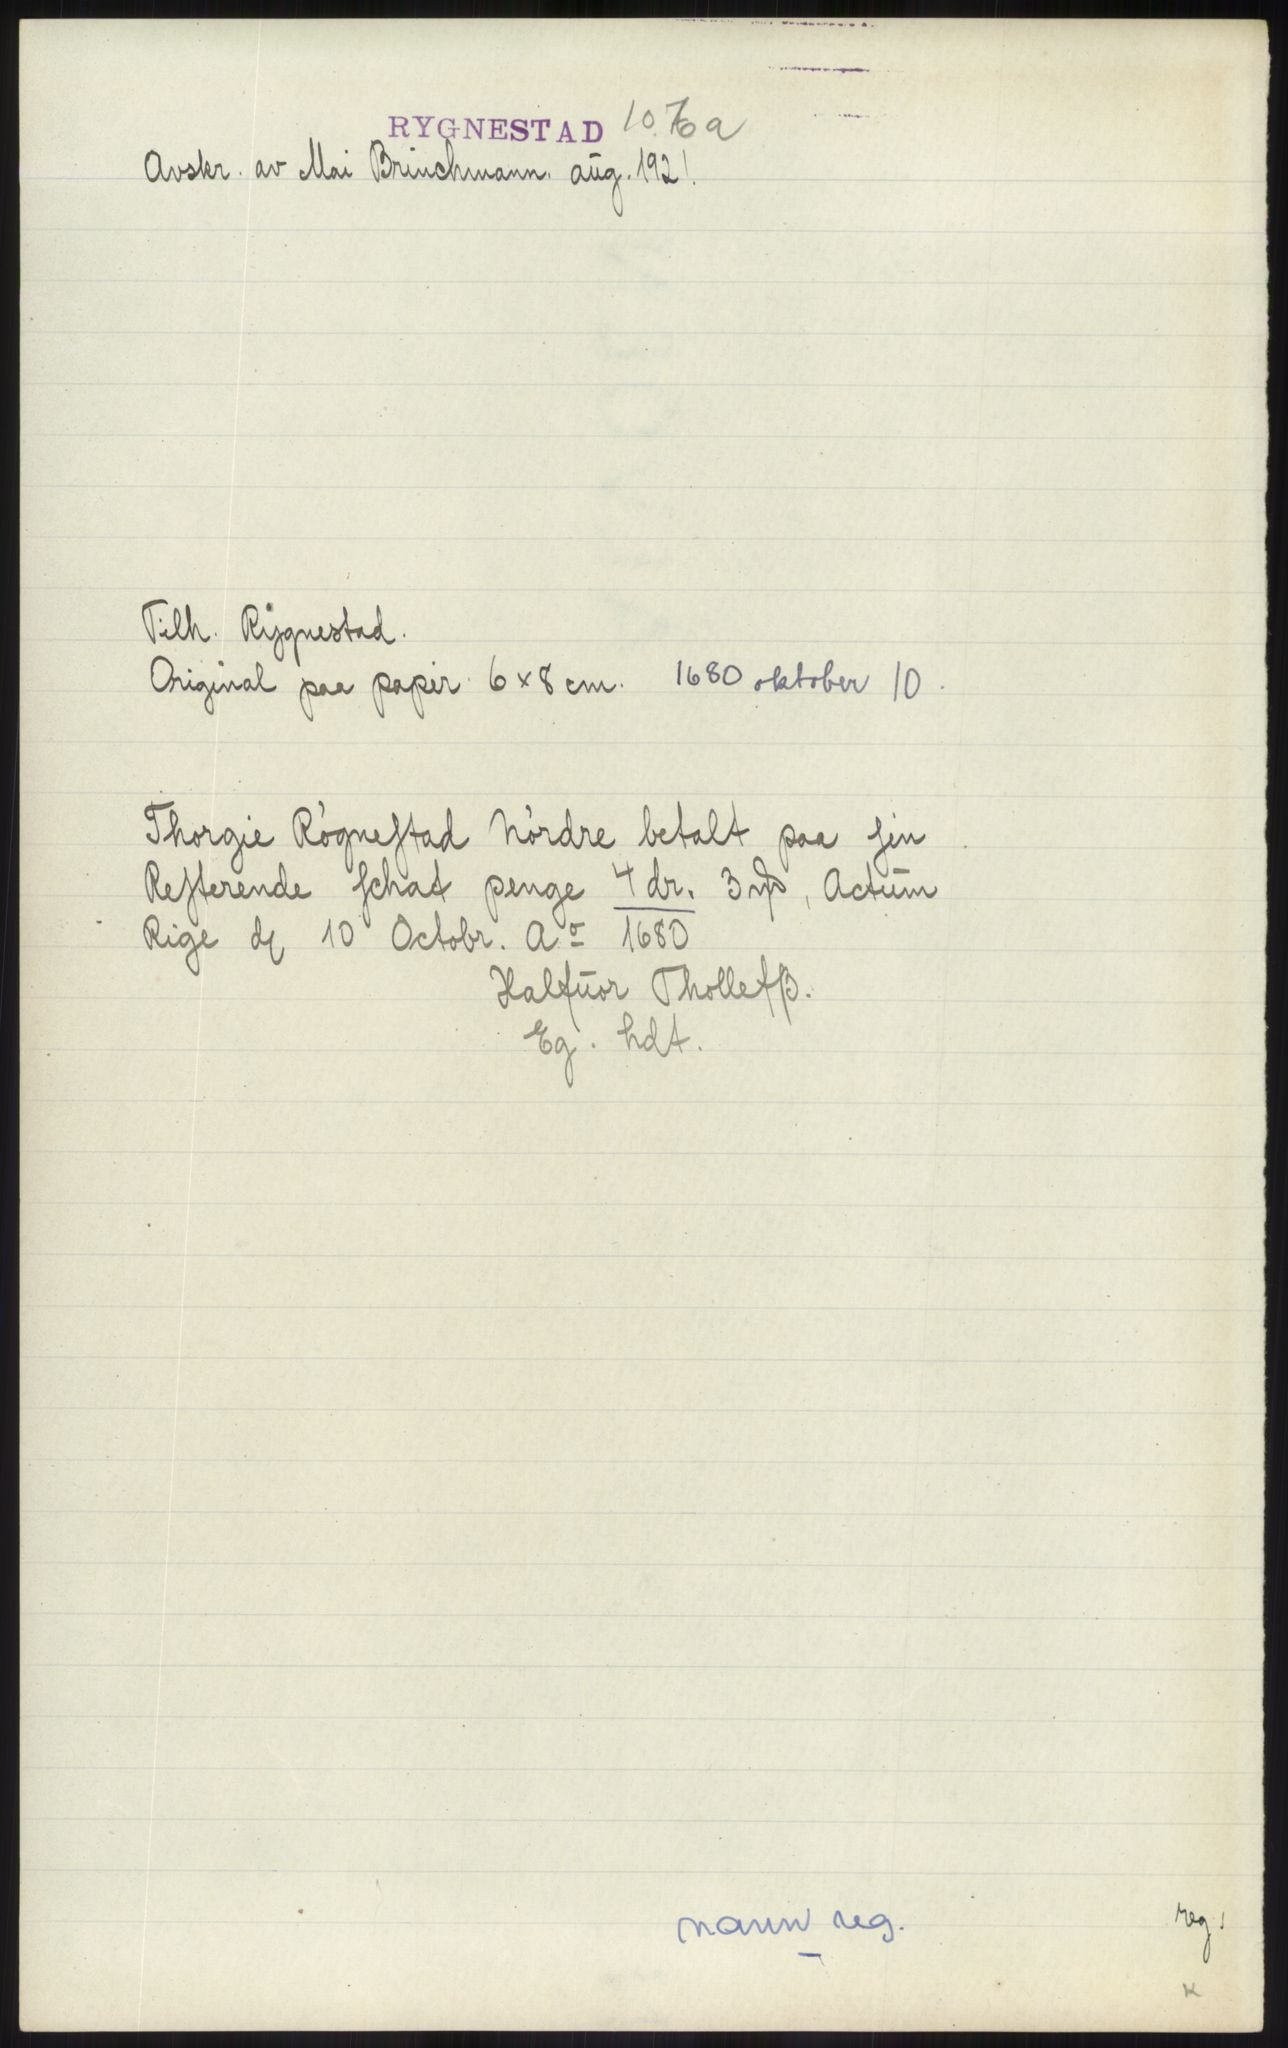 RYGNESTAD 10.76a
Avskr. av Mai Brinchmann. aug. 1921.
Tilh. Rygnestad.
Original paa papir 6 x 8 cm. 1680 oktober 10.
Thorgie Rógneſtad Nórdre betalt paa ſin
Reſterende ſchat penge 4 dr. 3 , Actum
Rige 10 Octobr. Aº 1680
Halfuor Thollefß.
Eg. hdt.
navn reg.
reg!
K